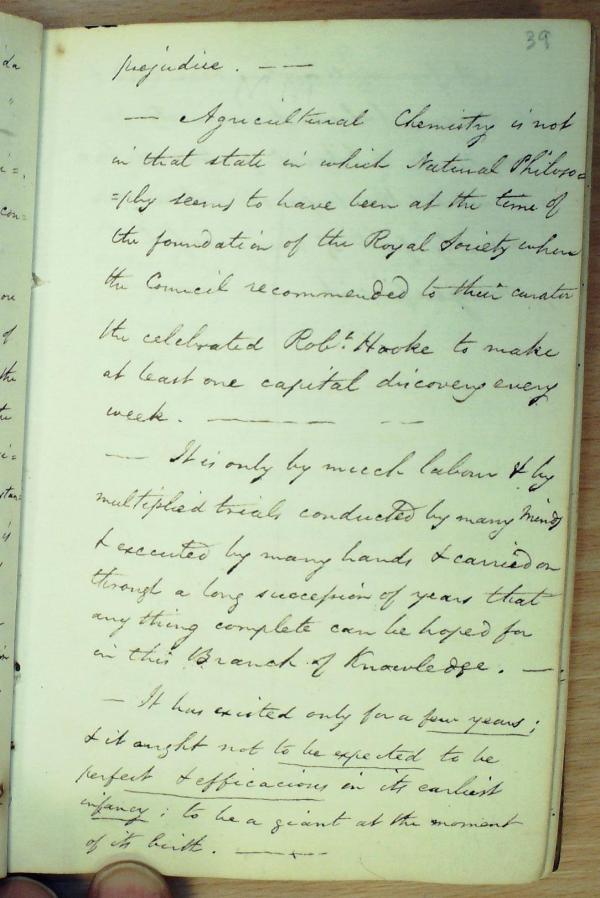 39
prejudice. — —
— Agricultural Chemistry is not
in that state in which Natural Philoso=
=phy seems to have been at the time of
the foundation of the Royal Society when
the Council recommended to their curator
the celebrated Robt. Hooke to make
at least one capital discovery every
week. — —
— It is only by much labour & by
multiplied trials conducted by many Minds
& executed by many hands & carried on
through a long succession of years that
any thing complete can be hoped for
in this Branch of Knowledge. —
— It has existed only for a few years;
& it ought not to be expected to be
perfect & efficacious in its earliest
infancy; to be a giant at the moment
of its birth. —